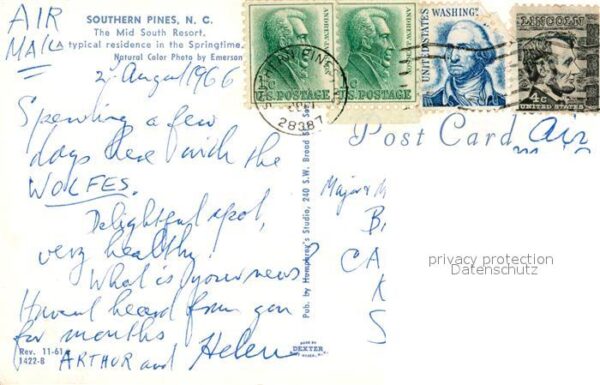 AIR
MAIL
SOUTHERN PINES, N. C.
The Mid South Resort.
typical residence in the Springtime.
Natural Color Photo by Emerson
2 August 1966
Spending a few
days here with the
WOLFES.
Delightful spot,
very healthy!
What is your news?
Haven't heard from you
for months
ARTHUR and Helen
Rev. 11-61
1422-B
Pub. by Humphrey's Studio, 240 S.W. Broad St.
MADE BY
DEXTER
U.S. POSTAGE
U.S. POSTAGE
UNITED STATES
WASHINGT
LINCOLN
4c
UNITED STATES
PINES
28387
Post Card
Air
Major & M
B
CA
K
S
privacy protection
Datenschutz